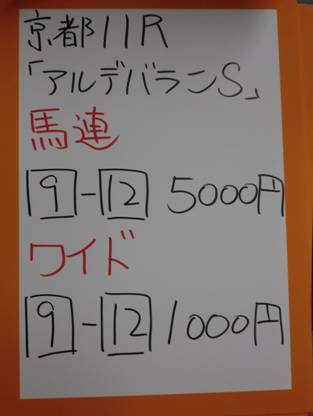 京都11R
「アルデバランS」
馬連
9-12 5000円
ワイド
9-12 1000円